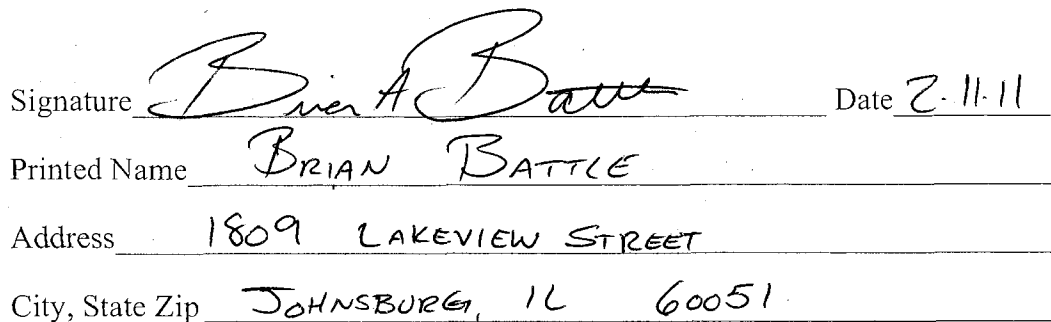 Signature Brian A Battle Date 2.11.11
Printed Name BRIAN BATTLE
Address 1809 LAKEVIEW STREET
City, State Zip JOHNSBURG, IL 60051